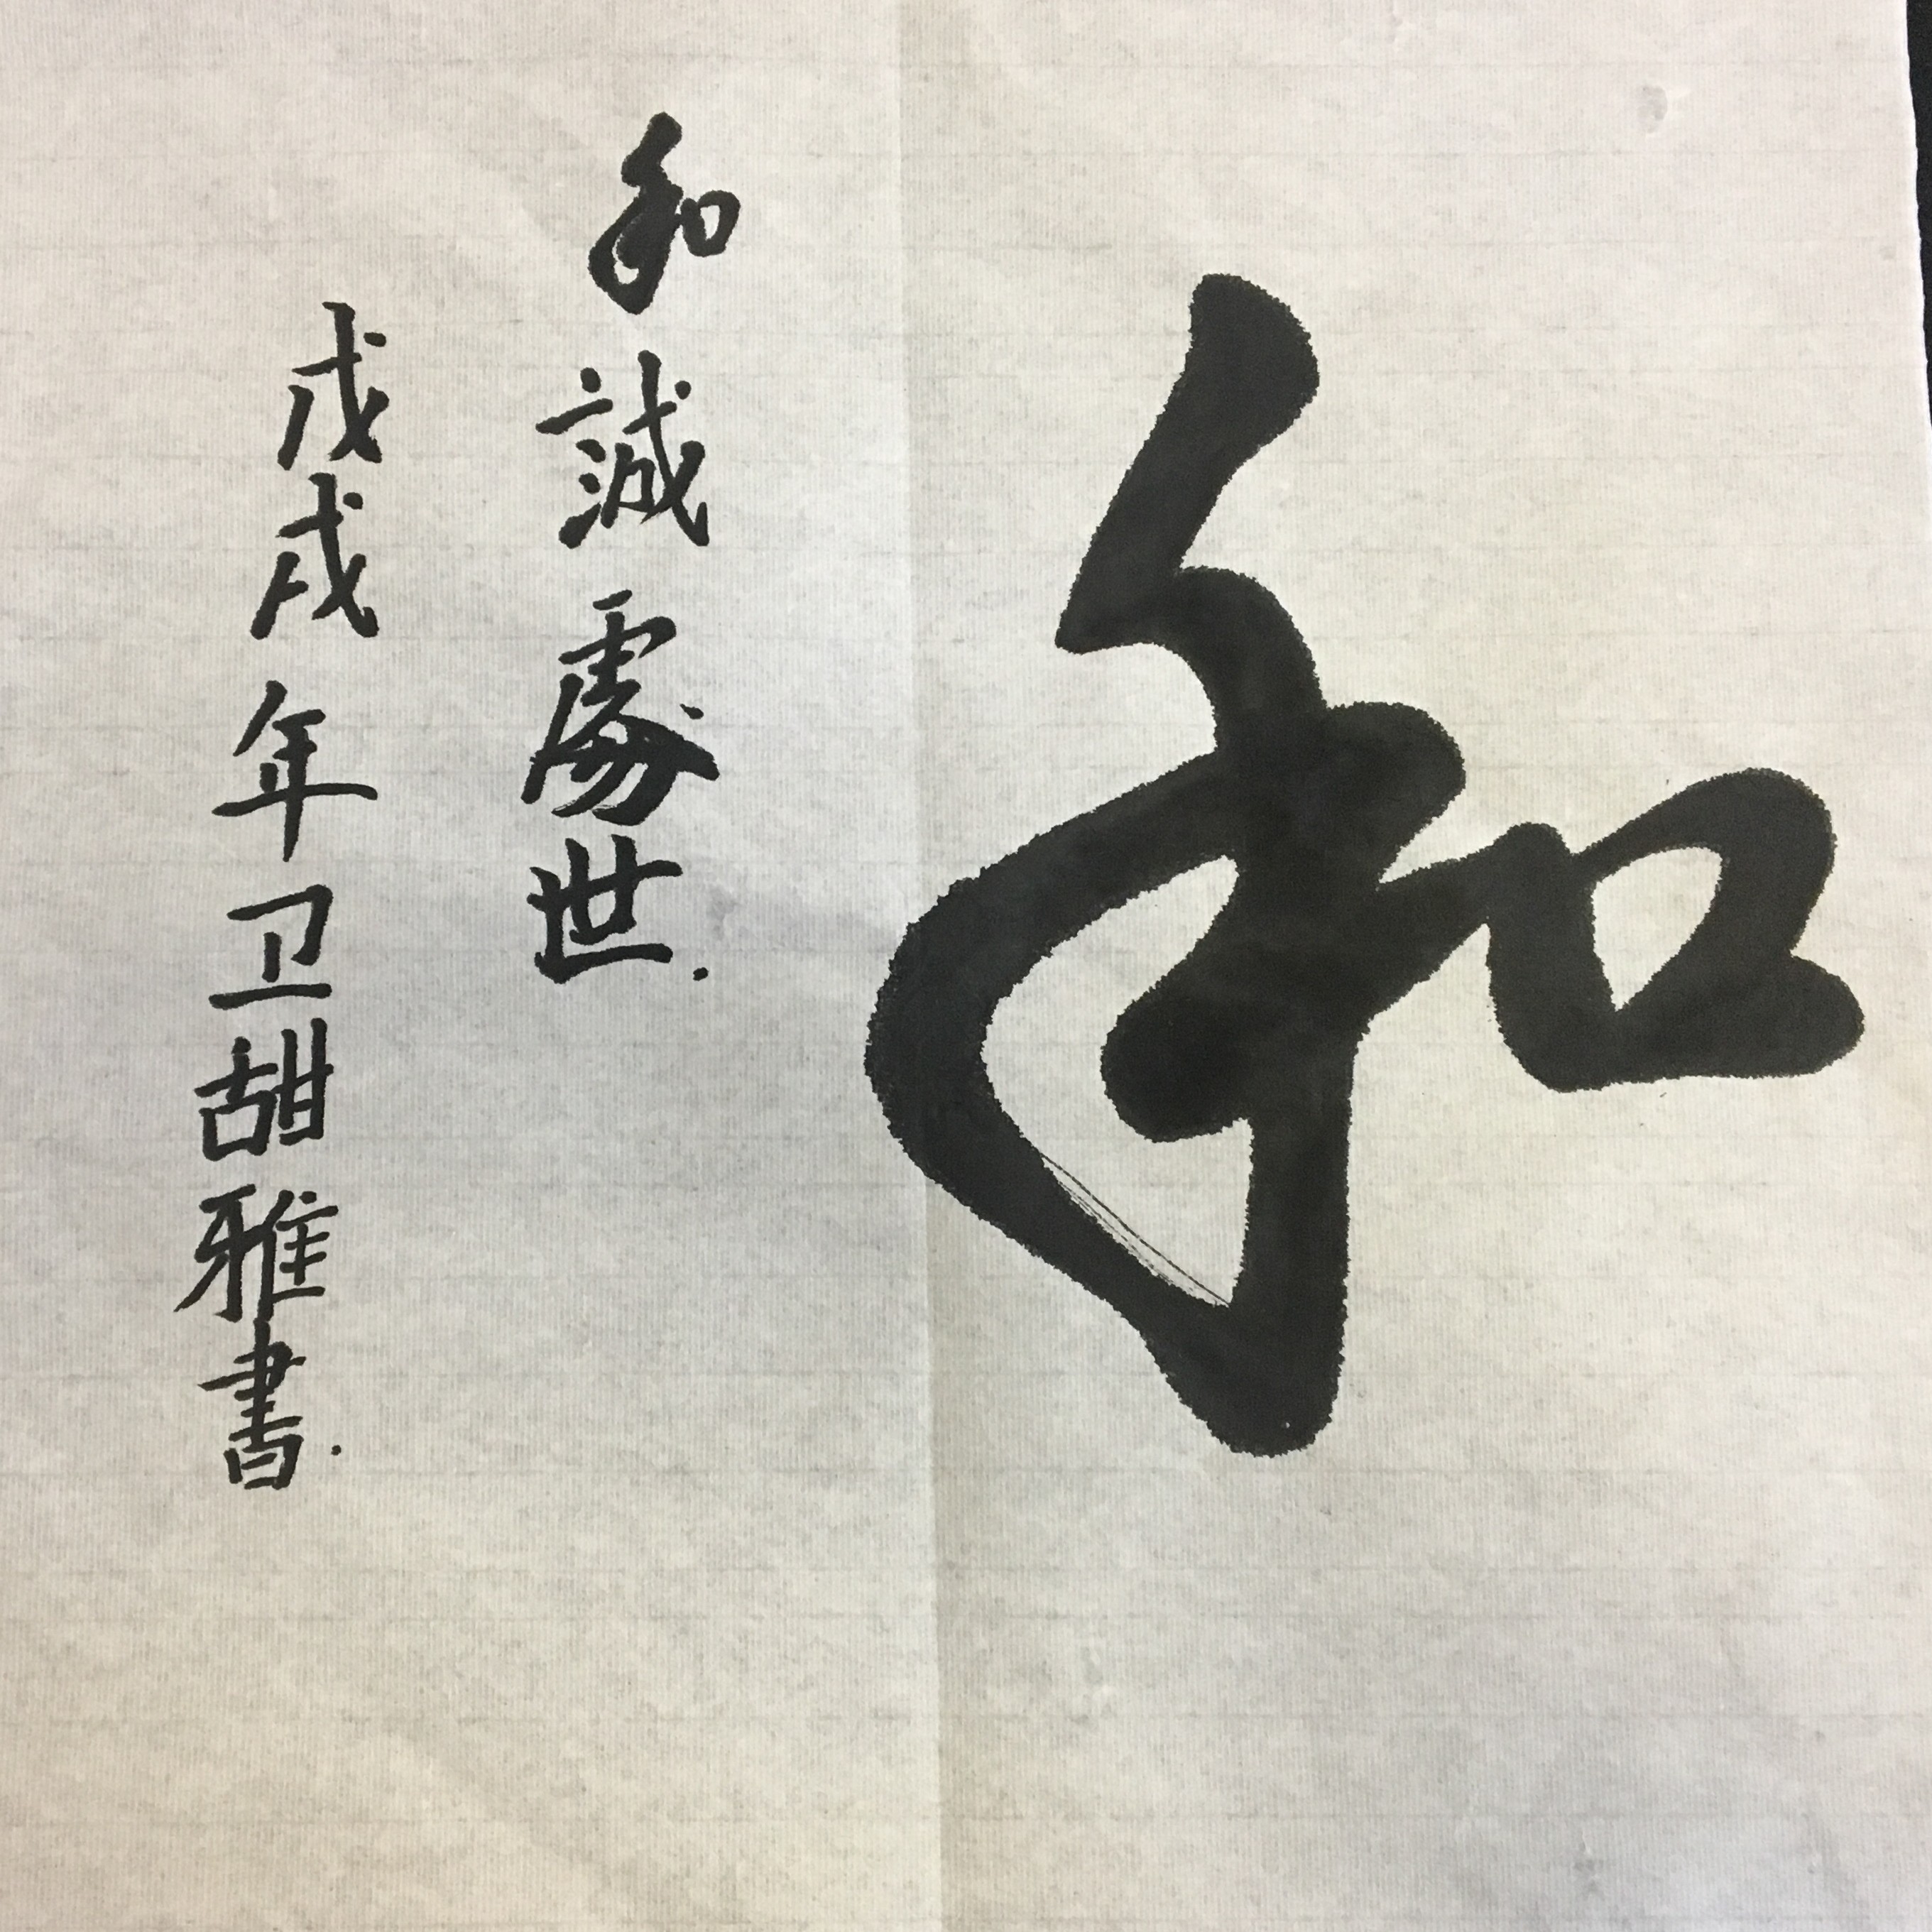 和
和誠處世.
戊戌年卫甜雅書.